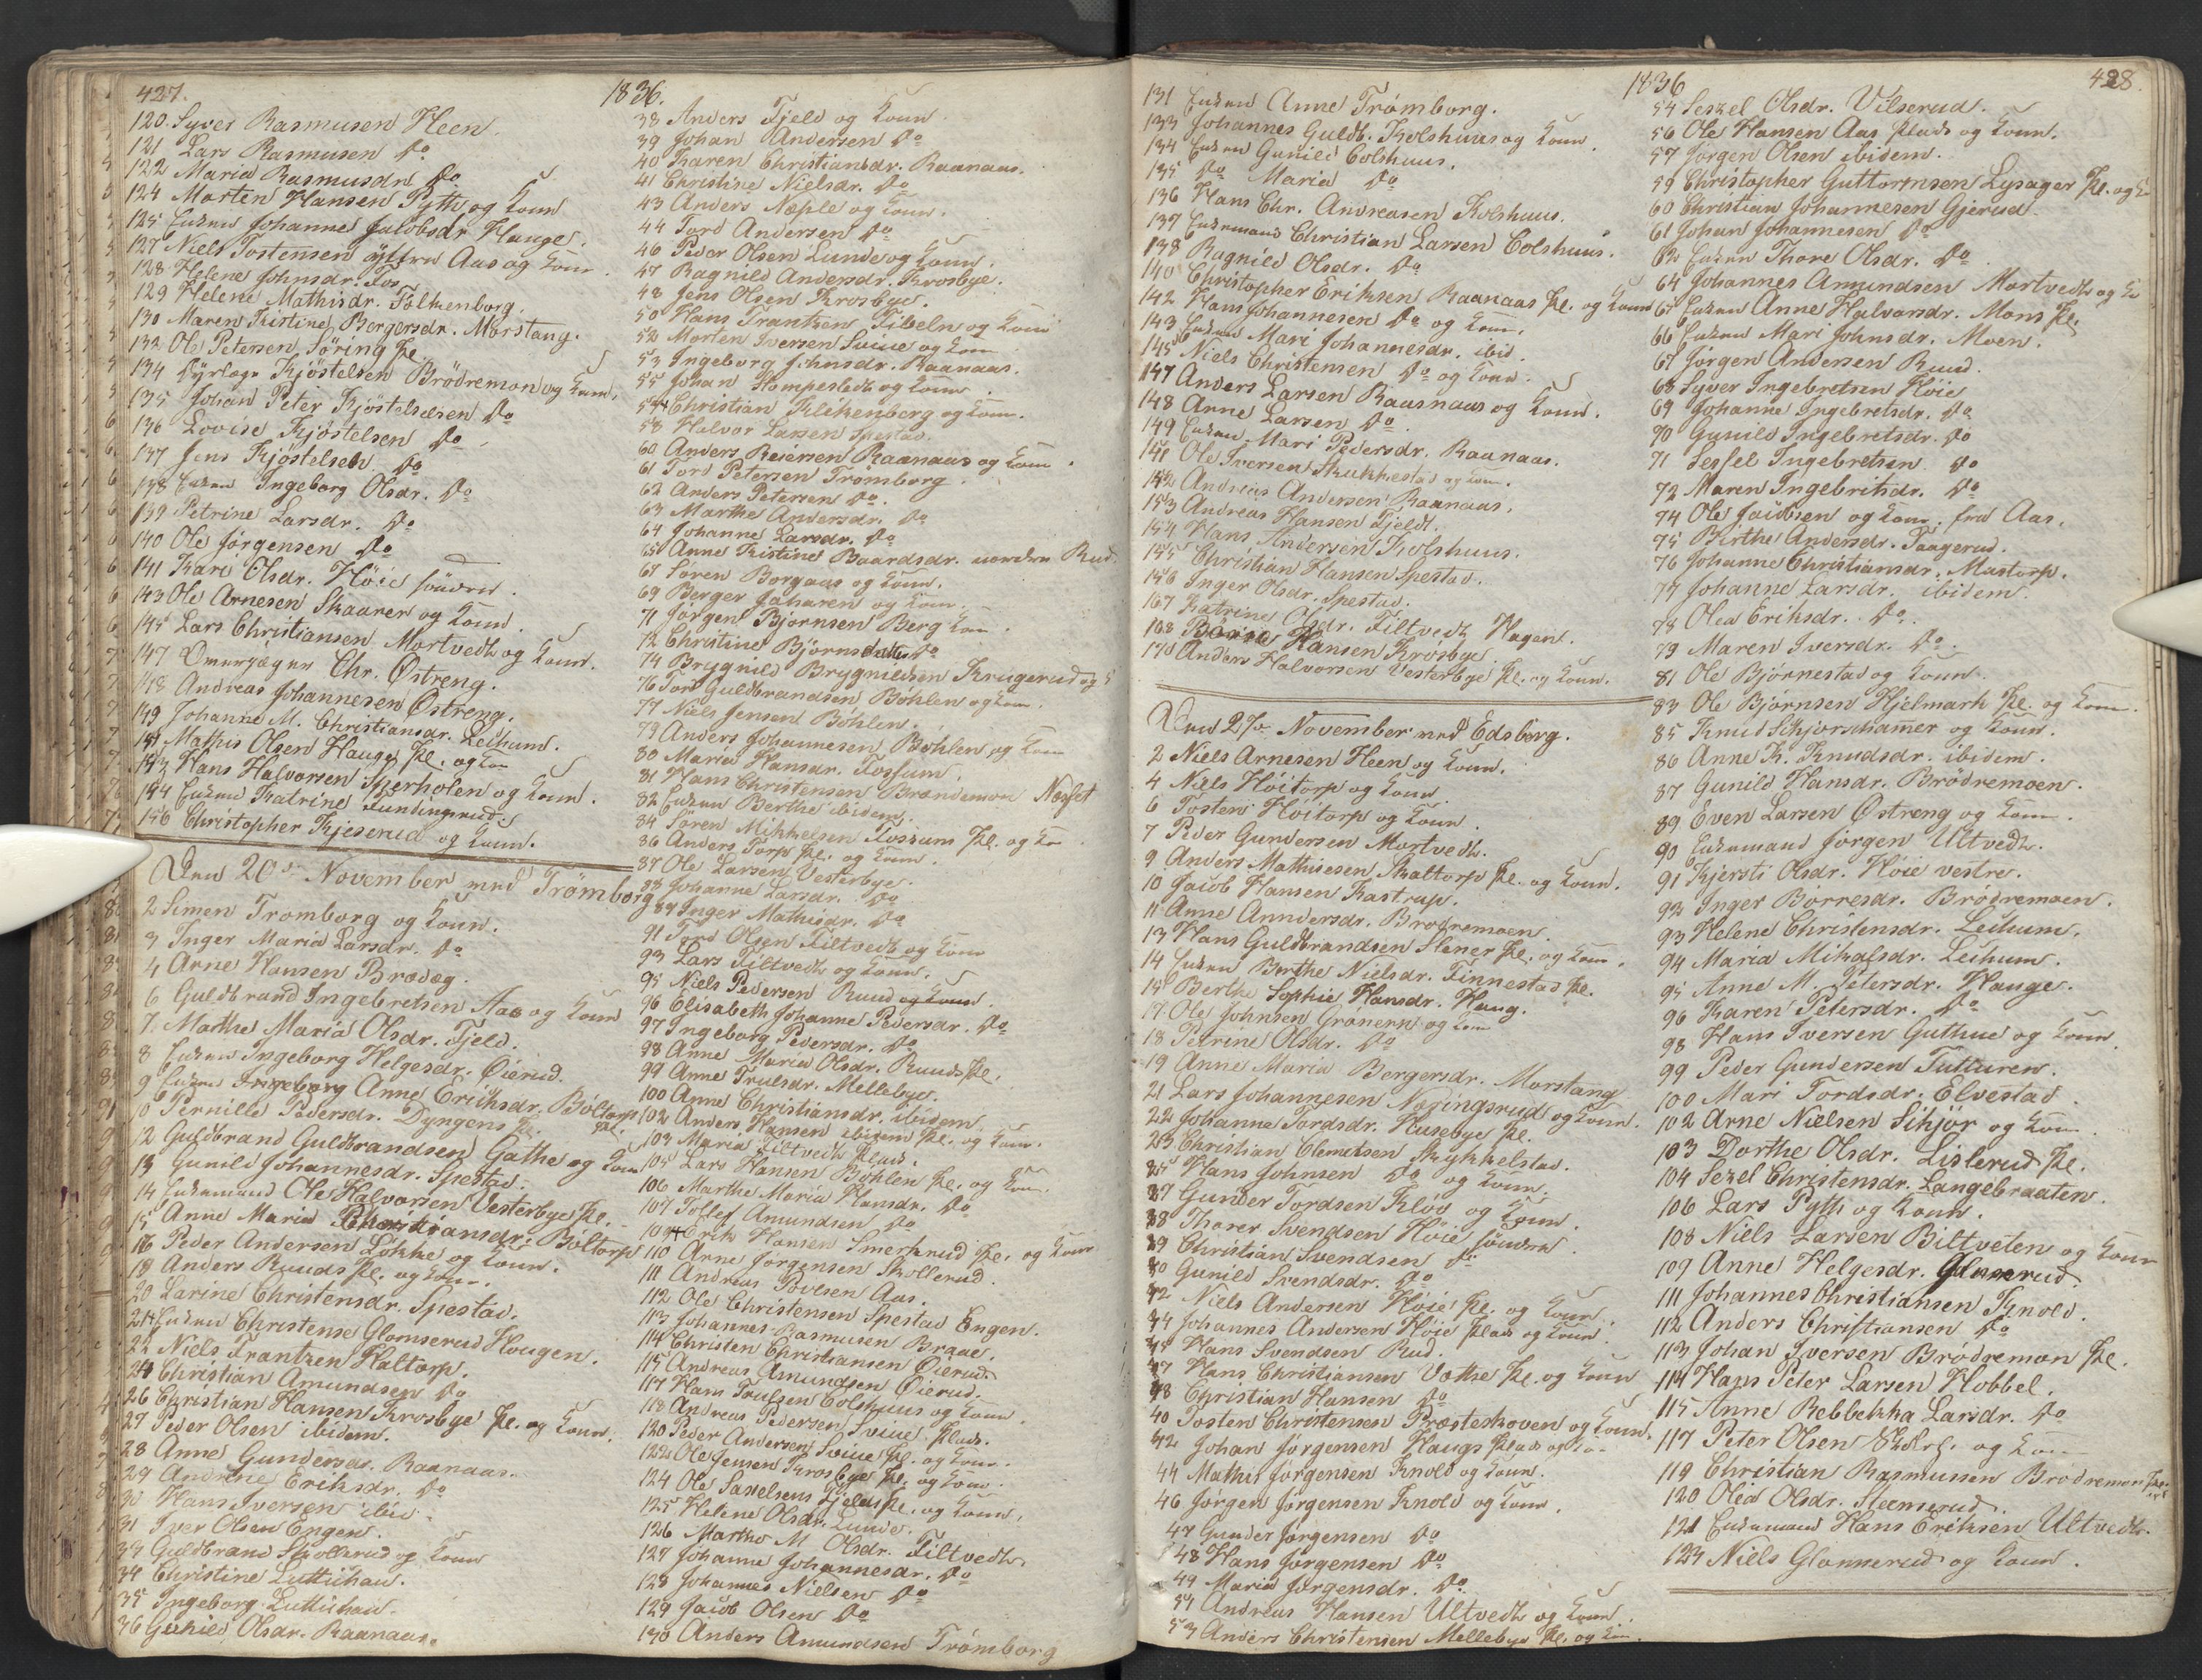 427.
1836.
120. Syver Rasmusen Heen.
121 Lars Rasmusen do
122 Maria Rasmusdr do
124 Morten Hansen Pyth og Konn
125 Enken Johanne Jacobsdr. Hauge.
127 Niels Tostensen yttre Aas og Konn.
128 Helene Johnsdr. Fos
129 Helene Mathisdr. Folkenborg.
130 Maren Kistine Bergersdr. Morstang.
132 Ole Petersen Söring Pl.
134 Dyrlæge Kjöstelsen Brödremon og Konn.
135 Johan Peter Kjöstelsen do
136 Lovise Kjöstelsen do
137 Jens Kjöstelsen do
138 Enken Ingeborg Olsdr. do
139 Petrine Larsdr. do
140 Ole Jörgensen do
141 Kari Olsdr. Höie söndre.
143 Ole Arnesen Skaaren og Konn.
145 Lars Christiansen Mortvedt og Konn.
147 Chr. Östreng.
148 Andreas Johannesen Östreng.
149 Johanne M. Christiansdr. Leihum.
151 Mathis Olsen Hauge Pl. og Kon
153 Hans Halvorsen Sperholen og Konn.
154 Enken Katrine Fundingsrud.
156 Christopher Kjeserud og Konn.
Den 20de November ved Trömborg
2 Simen Tromborg og Konn.
3 Inger Maria Larsdr. do
4 Arne Hansen Brædeg.
6 Guldbrand Ingebretsen Aas og Konn
7. Marthe Maria Olsdr. Fjeld.
8 Enken Ingeborg Helgesdr. Öierud.
9 Enken Ingeborg Anne Eriksdr. Böltorp Pl.
10 Pernille Pedersdr. Dyngens Pl.
12 Guldbrand Guldbrandsen Gathe og Konn
13 Gunild Johannesdr. Spestad.
14 Enkemand Ole Halvorsen Vesterbye Pl.
15 Anne Maria Christiansdr. Böltorp
16 Peder Andersen Lökke og Konn.
18 Anders Ruuds Pl. og Konn.
20 Larine Christensdr. Spestad.
21 Enken Christense Glomserud Hougen.
22 Niels Frantzen Haltorp.
24 Christian Amundsen do
26 Christian Hansen Krosbye Pl. og Konn.
27 Peder Olsen ibidem.
28 Anne Gundersdr. Raanaas.
29 Andrine Eriksdr. do
30 Hans Iversen ibid.
31 Iver Olsen Engen.
33 Guldbrand Skollerud og Konn
34 Christine Luttichau.
35 Ingeborg Luttichau.
36 Gunild Olsdr. Raanaas.
38 Anders Fjeld og Konn.
39 Johan Andersen do
40 Karen Christiansdr. Raanaas.
41 Christine Nielsdr. do
43 Anders Næple og Konn.
44 Tord Andersen do
46 Peder Olsen Lunde og Konn.
47 Ragnild Andersdr. Krosbye.
48 Jens Olsen Krosbye.
50 Hans Frantzen Tibeln og Konn
52 Morten Iversen Sviue og Kon
53 Ingeborg Johnsdr. Raanaas.
55 Johan Hompestedt og Konn.
57 Christian Klikenberg og Konn.
58 Halvor Larsen Spestad.
60 Anders Reiersen Raanaas og Konn.
61 Tord Petersen Tromborg.
62 Anders Petersen do.
63 Marthe Andersdr. do
64 Johanne Larsdr. do
65 Anne Kistine Baardsdr. nordre Rud.
67 Sören Borgaas og Konn.
69 Berger Jaharen og Konn.
71 Jörgen Bjørnsen Berg Kon
72 Christine Björnsdatter do
74 Brygnild Brygnildsen Krugerud og K
76 Tord Guldbrandsen Böhlen og Konn.
77 Niels Jensen Böhlen.
79 Anders Johannesen Böhlen og Konn
80 Maria Hansdr. Fossum.
81 Hans Christensen Brandemon Næsset
82 Enken Berthe ibidem.
84 Sören Mikkelsen Fossum Pl. og Ko
86 Anders Torp Pl. og Konn.
87 Ole Larsen Vesterbye.
88 Johanne Larsdr. do
89 Inger Mathisdr. do
91 Tord Olsen Tiltvedt og Konn
93 Lars Tiltvedt og Konn.
95 Niels Pedersen Ruud og Konn.
96 Elisabeth Johanne Pedersdr. do
97 Ingeborg Pedersdr. do
98 Anne Maria Olsdr. Ruuds Pl.
99 Anne Trulsdr. Mellebye.
100 Anne Christiansdr. ibidem.
102 Anders Hansen ibidem Pl. og Konn.
103 Maria Tiltvedt Plads.
105 Lars Hansen Böhlen Pl. og Konn.
106 Marthe Maria Hansdr. do
107 Tollef Amundsen do
109 Erik Hansen Smerkrud Pl. og Konn
110 Arne Jörgensen Skollerud.
111 Andreas Povelsen Aas.
112 Ole Christensen Spestad Engen.
113 Johannes Rasmusen Braae.
114 Christen Christiansen Öierud.
115 Andreas Amundsen Öierud.
117 Hans Trulsen Colshuus og Konn.
118 Andreas Pedersen Sviue Plads.
120 Peder Andersen Sviue Pl. og Konn.
122 Ole Jensen Krosbye Pl. og Konn.
124 Ole Sasselsens Fjelds Pl. og Konn.
125 Helene Olsdr. Lunde.
126 Marthe M Olsdr. Tiltvedt
127 Johanne Johannesdr. do
128 Johannes Nielsen do
129 Jacob Olsen do
130 Anders Amundsen Trömborg
1836
428.
131 Enken Anne Trömborg.
133 Johannes Guldb. Kolshuus og Konn.
134 Enken Gunild Colshuus.
135 do Maria do
136 Hans Chr. Andreasen Kolshuus.
137 Enkemand Christian Larsen Colshuus.
138 Ragnild Olsdr. do
140 Christopher Eriksen Raanaas Pl. og Konn
142 Hans Johannesen do og Konn.
143 Enken Mari Johannesdr. ibid.
145 Niels Christensen do og Konn.
147 Anders Larsen Raasnaas og Konn.
148 Arne Larsen do.
149 Enken Mari Pedersdr. Raanaas.
151 Ole Iversen Skukkestad og Konn.
152 Andreas Andersen Raanaas.
153 Andreas Hansen Fjeldt.
154 Hans Andersen Kolshuus.
155 Christian Hansen Spestad.
156 Inger Olsdr. Spestad.
167 Katrine Olsdr. Tiltvedt Hagen.
168 Hansen Krosbye.
170 Anders Halvorsen Vesterbye Pl. og Konn.
Den 27de November ved Edsberg.
2 Niels Arnesen Heen og Konn.
4 Niels Höitorp og Konn.
6 Tosten Höitorp og Konn.
7 Peder Gundersen Mortvedt.
9 Anders Mathisesen Skaltorp Pl. og Konn.
10 Jacob Hansen Kastrup.
11 Anne Anndersdr. Brodremoen.
13 Hans Guldbrandsen Slener Pl. og Konn.
14 Enken Berthe Nielsdr. Finnestad Pl.
15 Berthe Sophie Hansdr. Haug.
17. Ole Johnsen Grönern og Kon
18 Petrine Olsdr. do
19 Anne Maria Bergersdr. Morstang
21 Lars Johannesen Næringsrud og Konn.
22 Johanne Tordsdr. Husebye Pl.
23 Christian Clemetsen Skykkelstad.
25 Hans Johnsen do og Konn.
27 Gunder Tordsen Klöv og Konn.
28 Thorer Svendsen Höie söndre.
29 Christian Svendsen do
30 Gunild Svendsdr. do
32 Niels Andersen Höie Pl. og Konn.
34 Johannes Andersen Höie Plads og Konn.
35 Hans Svendsen Rud.
37 Hans Christiansen Vathe Pl. og Konn
38 Christian Hansen do
40 Tosten Christensen Præsteskoven og Konn.
42 Johan Jörgensen Haugs Plads og Kon
44 Mathis Jörgensen Knold og Konn.
46 Jörgen Jörgensen Knold og Konn.
47 Gunder Jörgensen do
48 Hans Jörgensen do
49 Maria Jörgensdr. do
51 Andreas Hansen Ultvedt og Konn.
53 Anders Christensen Mellebye Pl. og Kon.
54 Seszel Olsdr. Vilserud.
56 Ole Hansen Aas Plads og Konn.
57 Jörgen Olsen ibidem.
59 Christopher Guttormsen Lysager Pl. og K
60 Christian Johannesen Gjerud.
61 Johan Johannesen do
62 Enken Thore Olsdr. do.
64 Johannes Amundsen Mortvedt og Ko
65 Enken Anne Halvorsdr. Mons Pl.
66 Enken Mari Johnsdr. Moen.
67 Jörgen Andersen Ruud.
68 Syver Ingebretsen Höie
69 Johanne Ingebretsdr. do
70 Gunild Ingebretsdr. do
71 Sessel Ingebretsen do
72 Maren Ingebritsdr. do
74 Ole Jacobsen og Konn. fra Aas.
75 Birthe Andersdr. Taagerud.
76 Johanne Christiansdr. Mastorp.
77 Johanne Larsdr. ibidem.
78 Olea Eriksdr. do.
79 Maren Iversdr. do.
81 Ole Björnestad og Konn.
83 Ole Björnsen Hjelmark Pl. og Konn.
85 Knud Skjorshamer og Konn.
86 Anne K. Knudsdr. ibidem.
87 Gunild Hansdr. Brödremoen.
89 Even Larsen Östreng og Konn.
90 Enkemand Jörgen Ultvedt.
91 Kjersti Olsdr. Höie vestre.
92 Inger Börresdr. Brödremoen.
93 Helene Christensdr. Leihum.
94 Maria Mikalsdr. Leihum.
95 Anne M. Petersdr. Hauge.
96 Karen Petersdr. do
98 Hans Iversen Guthue og Konn.
99 Peder Gundersen Tutturen.
100 Mari Tordsdr. Elvestad.
102 Arne Nielsen Sikjör og Konn.
103 Dorthe Olsdr. Lislerud Pl.
104 Sezel Christensdr. Langebraaten.
106 Lars Pyth og Konn.
108 Niels Larsen Biltveten og Konn
109 Anne Helgesdr. Glomrud.
111 Johannes Christiansen Knold.
112 Anders Christiansen do
113 Johan Iversen Brödremon Pl.
114 Hans Peter Larsen Hobbel.
115 Anne Rebbekka Larsdr. do
117 Peter Olsen og Kon
119 Christian Rasmussen Brödremon Pl.
120 Olea Olsdr. Slemserud.
121 Enkemand Hans Eriksen Ultvedt.
123 Niels Glomnerud og Konn.